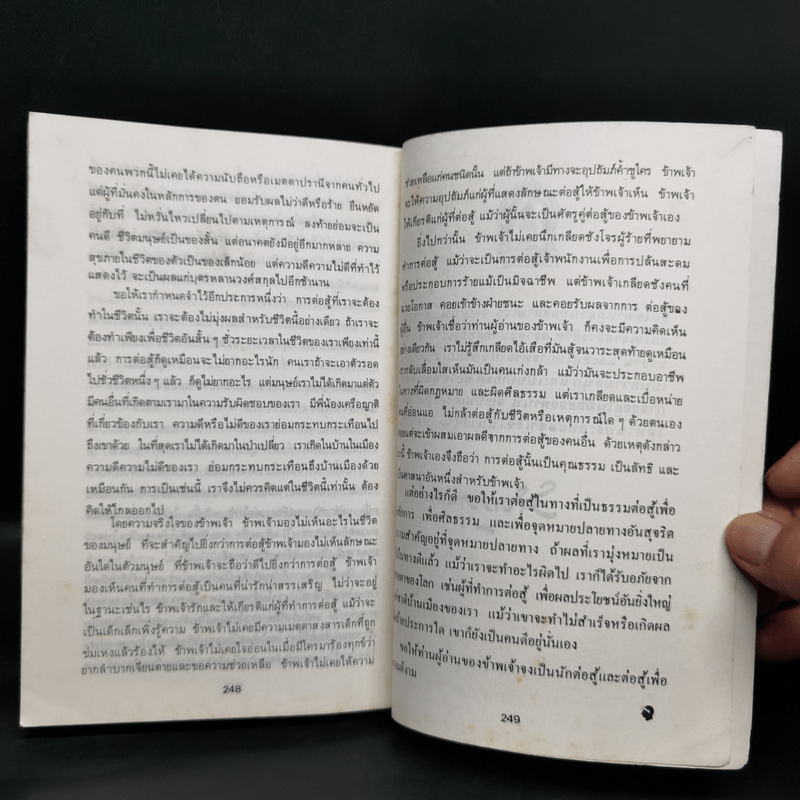 ของคนพวกนี้ไม่เคยได้ความนับถือหรือเมตตาปรานีจากคนทั่วไป
แต่ผู้ที่มั่นคงในหลักการของตน ยอมรับผลไม่ว่าดีหรือร้าย ยืนหยัด
อยู่กับที่ ไม่หวั่นไหวเปลี่ยนไปตามเหตุการณ์ ลงท้ายย่อมจะเป็น
คนดี ชีวิตมนุษย์เป็นของสั้น แต่อนาคตยังมีอยู่อีกมากหลาย ความ
สุขภายในชีวิตของตัวเป็นของเล็กน้อย แต่ความดีความไม่ดีที่ทำไว้
แสดงไว้ จะเป็นผลแก่บุตรหลานวงศ์สกุลไปอีกช้านาน
ขอให้เรากำหนดจำไว้อีกประการหนึ่งว่า การต่อสู้ที่เราจะต้อง
ทำในชีวิตนั้น เราจะต้องไม่มุ่งผลสำหรับชีวิตนี้อย่างเดียว ถ้าเราจะ
ต้องทำเพียงเพื่อชีวิตอันสั้น ๆ ชั่วระยะเวลาในชีวิตของเราเพียงเท่านี้
แล้ว การต่อสู้ก็ดูเหมือนจะไม่ยากอะไรนัก คนเราถ้าจะเอาตัวรอด
ไปชั่วชีวิตหนึ่ง ๆ แล้ว ก็ดูไม่ยากอะไร แต่มนุษย์เราไม่ได้เกิดมาแต่ตัว
มีคนอื่นที่เกิดตามเรามาในความรับผิดชอบของเรา มีพี่น้องเครือญาติ
ที่เกี่ยวข้องกับเรา ความดีหรือไม่ดีของเราย่อมกระทบกระเทือนไป
ถึงเขาด้วย ในที่สุดเราไม่ได้เกิดมาในป่าเปลี่ยว เราเกิดในบ้านในเมือง
ความดีความไม่ดีของเรา ย่อมกระทบกระเทือนถึงบ้านเมืองด้วย
เหมือนกัน การเป็นเช่นนี้ เราจึงไม่ควรคิดแต่ในชีวิตนี้เท่านั้น ต้อง
คิดให้ไกลออกไป
โดยความจริงใจของข้าพเจ้า ข้าพเจ้ามองไม่เห็นอะไรในชีวิต
ของมนุษย์ ที่จะสำคัญไปยิ่งกว่าการต่อสู้ข้าพเจ้ามองไม่เห็นลักษณะ
อันใดในตัวมนุษย์ ที่ข้าพเจ้าจะถือว่าดีไปยิ่งกว่าการต่อสู้ ข้าพเจ้า
มองเห็นคนที่ทำการต่อสู้เป็นคนที่น่ารักน่าสรรเสริญ ไม่ว่าจะอยู่
ในฐานะเช่นไร ข้าพเจ้ารักและให้เกียรติแก่ผู้ที่ทำการต่อสู้ แม้ว่าจะ
เป็นเด็กเล็กเพิ่งรู้ความ ข้าพเจ้าไม่เคยมีความเมตตาสงสารเด็กที่ถูก
ข่มเหงแล้วร้องไห้ ข้าพเจ้าไม่เคยใจอ่อนในเมื่อมีใครมาร้องทุกข์ว่า
ยากลำบากเจียนตายและขอความช่วยเหลือ ข้าพเจ้าไม่เคยให้ความ
248
ช่วยเหลือแก่คนชนิดนั้น แต่ถ้าข้าพเจ้ามีทางจะอุปถัมภ์ค้ำชูใคร ข้าพเจ้า
จะให้ความอุปถัมภ์แก่ผู้ที่แสดงลักษณะต่อสู้ให้ข้าพเจ้าเห็น ข้าพเจ้า
ให้เกียรติแก่ผู้ที่ต่อสู้ แม้ว่าผู้นั้นจะเป็นศัตรูคู่ต่อสู้ของข้าพเจ้าเอง
ยิ่งไปกว่านั้น ข้าพเจ้าไม่เคยนึกเกลียดชังโจรผู้ร้ายที่พยายาม
ทำการต่อสู้ แม้ว่าจะเป็นการต่อสู้เจ้าพนักงานเพื่อการปล้นสะดม
หรือประกอบการร้ายแม้เป็นมิจฉาชีพ แต่ข้าพเจ้าเกลียดชังคนที่
ฉวยโอกาส คอยเข้าข้างฝ่ายชนะ และคอยรับผลจากการ ต่อสู้ของ
ผู้อื่น ข้าพเจ้าเชื่อว่าท่านผู้อ่านของข้าพเจ้า ก็คงจะมีความคิดเห็น
อย่างเดียวกัน เราไม่รู้สึกเกลียดไอ้เสือที่มันสู้จนวาระสุดท้ายดูเหมือน
เรากลับเลื่อมใสเห็นมันเป็นคนเก่งกล้า แม้ว่ามันจะประกอบอาชีพ
ในทางที่ผิดกฎหมาย และผิดศีลธรรม แต่เราเกลียดและเบื่อหน่าย
คนที่อ่อนแอ ไม่กล้าต่อสู้กับชีวิตหรือเหตุการณ์ใด ๆ ด้วยตนเอง
คอยแต่จะเข้าผสมเอาผลดีจากการต่อสู้ของคนอื่น ด้วยเหตุดังกล่าว
นี้ ข้าพเจ้าเองจึงถือว่า การต่อสู้นั้นเป็นคุณธรรม เป็นลัทธิ และ
เป็นศาสนาอันหนึ่งสำหรับข้าพเจ้า
แต่อย่างไรก็ดี ขอให้เราต่อสู้ในทางที่เป็นธรรมต่อสู้เพื่อ
หลักการ เพื่อศีลธรรม และเพื่อจุดหมายปลายทางอันสุจริต
ความสำคัญอยู่ที่จุดหมายปลายทาง ถ้าผลที่เรามุ่งหมายเป็น
ไปในทางดีแล้ว แม้ว่าเราจะทำอะไรผิดไป เราก็ได้รับอภัยจาก
สายตาของโลก เช่นผู้ที่ทำการต่อสู้ เพื่อผลประโยชน์อันยิ่งใหญ่
ชาติบ้านเมืองของเรา แม้ว่าเขาจะทำไม่สำเร็จหรือเกิดผล
ร้ายประการใด เขาก็ยังเป็นคนดีอยู่นั่นเอง
ขอให้ท่านผู้อ่านของข้าพเจ้าจงเป็นนักต่อสู้และต่อสู้เพื่อ
ความดีงาม
249